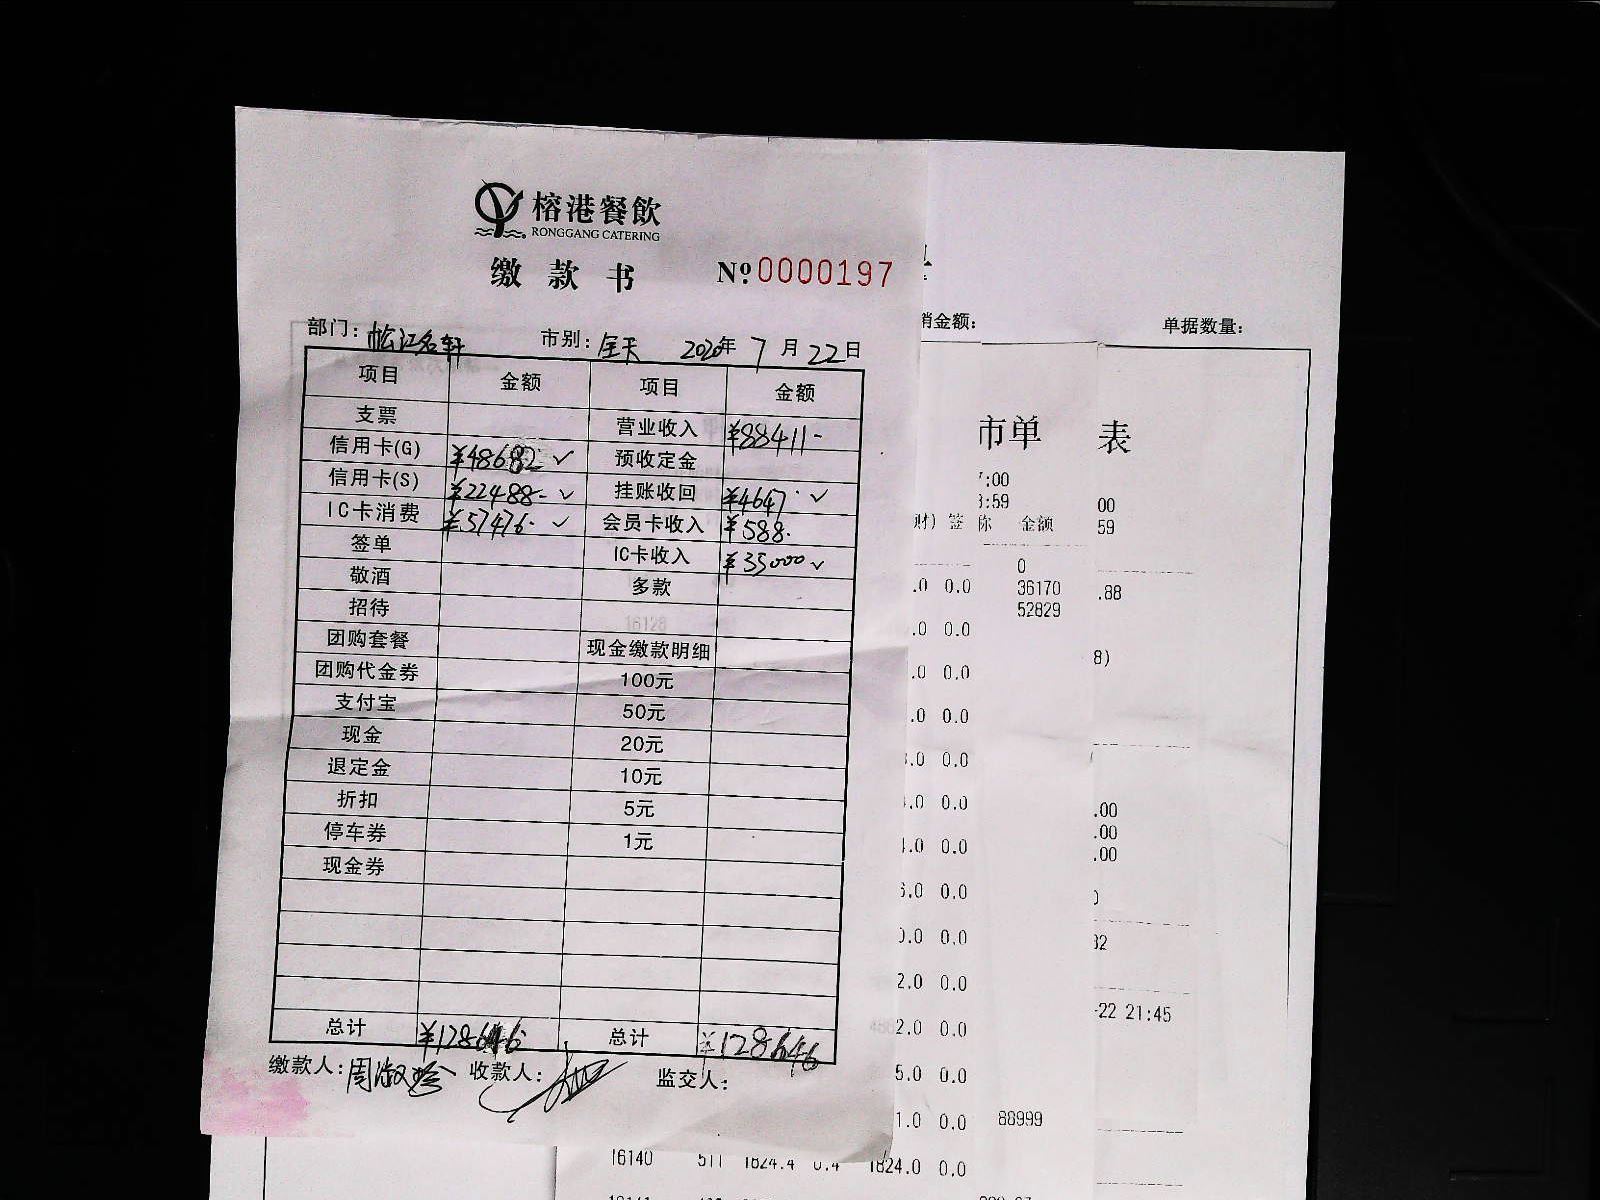 榕港餐飲
RONGGANG CATERING
缴款书 №0000197
部门: 松江名轩 市别: 全天 2020年7月22日
项目 金额 项目 金额
支票 营业收入 ¥88411-
信用卡(G) ¥48682 ✓ 预收定金
信用卡(S) ¥22488- ✓ 挂账收回 ¥4647 ✓
IC卡消费 ¥57476 ✓ 会员卡收入 ¥588
签单 IC卡收入 ¥35000 ✓
敬酒 多款
招待
团购套餐 现金缴款明细
团购代金券 100元
支付宝 50元
现金 20元
退定金 10元
折扣 5元
停车券 1元
现金券
总计 ¥128646 总计 ¥128646
缴款人: 周淑 收款人: 监交人:
销金额: 单据数量:
市单 表
:00
:59 00
财) 签 称 金额 59
0
.0 0.0 36170 .88
52829
.0 0.0
8)
.0 0.0
.0 0.0
.0 0.0
.0 0.0 .00
.00
.0 0.0 .00
6.0 0.0
0.0 0.0 32
2.0 0.0
-22 21:45
2.0 0.0
5.0 0.0
1.0 0.0 88999
16140 511 1824.4 0.4 1824.0 0.0